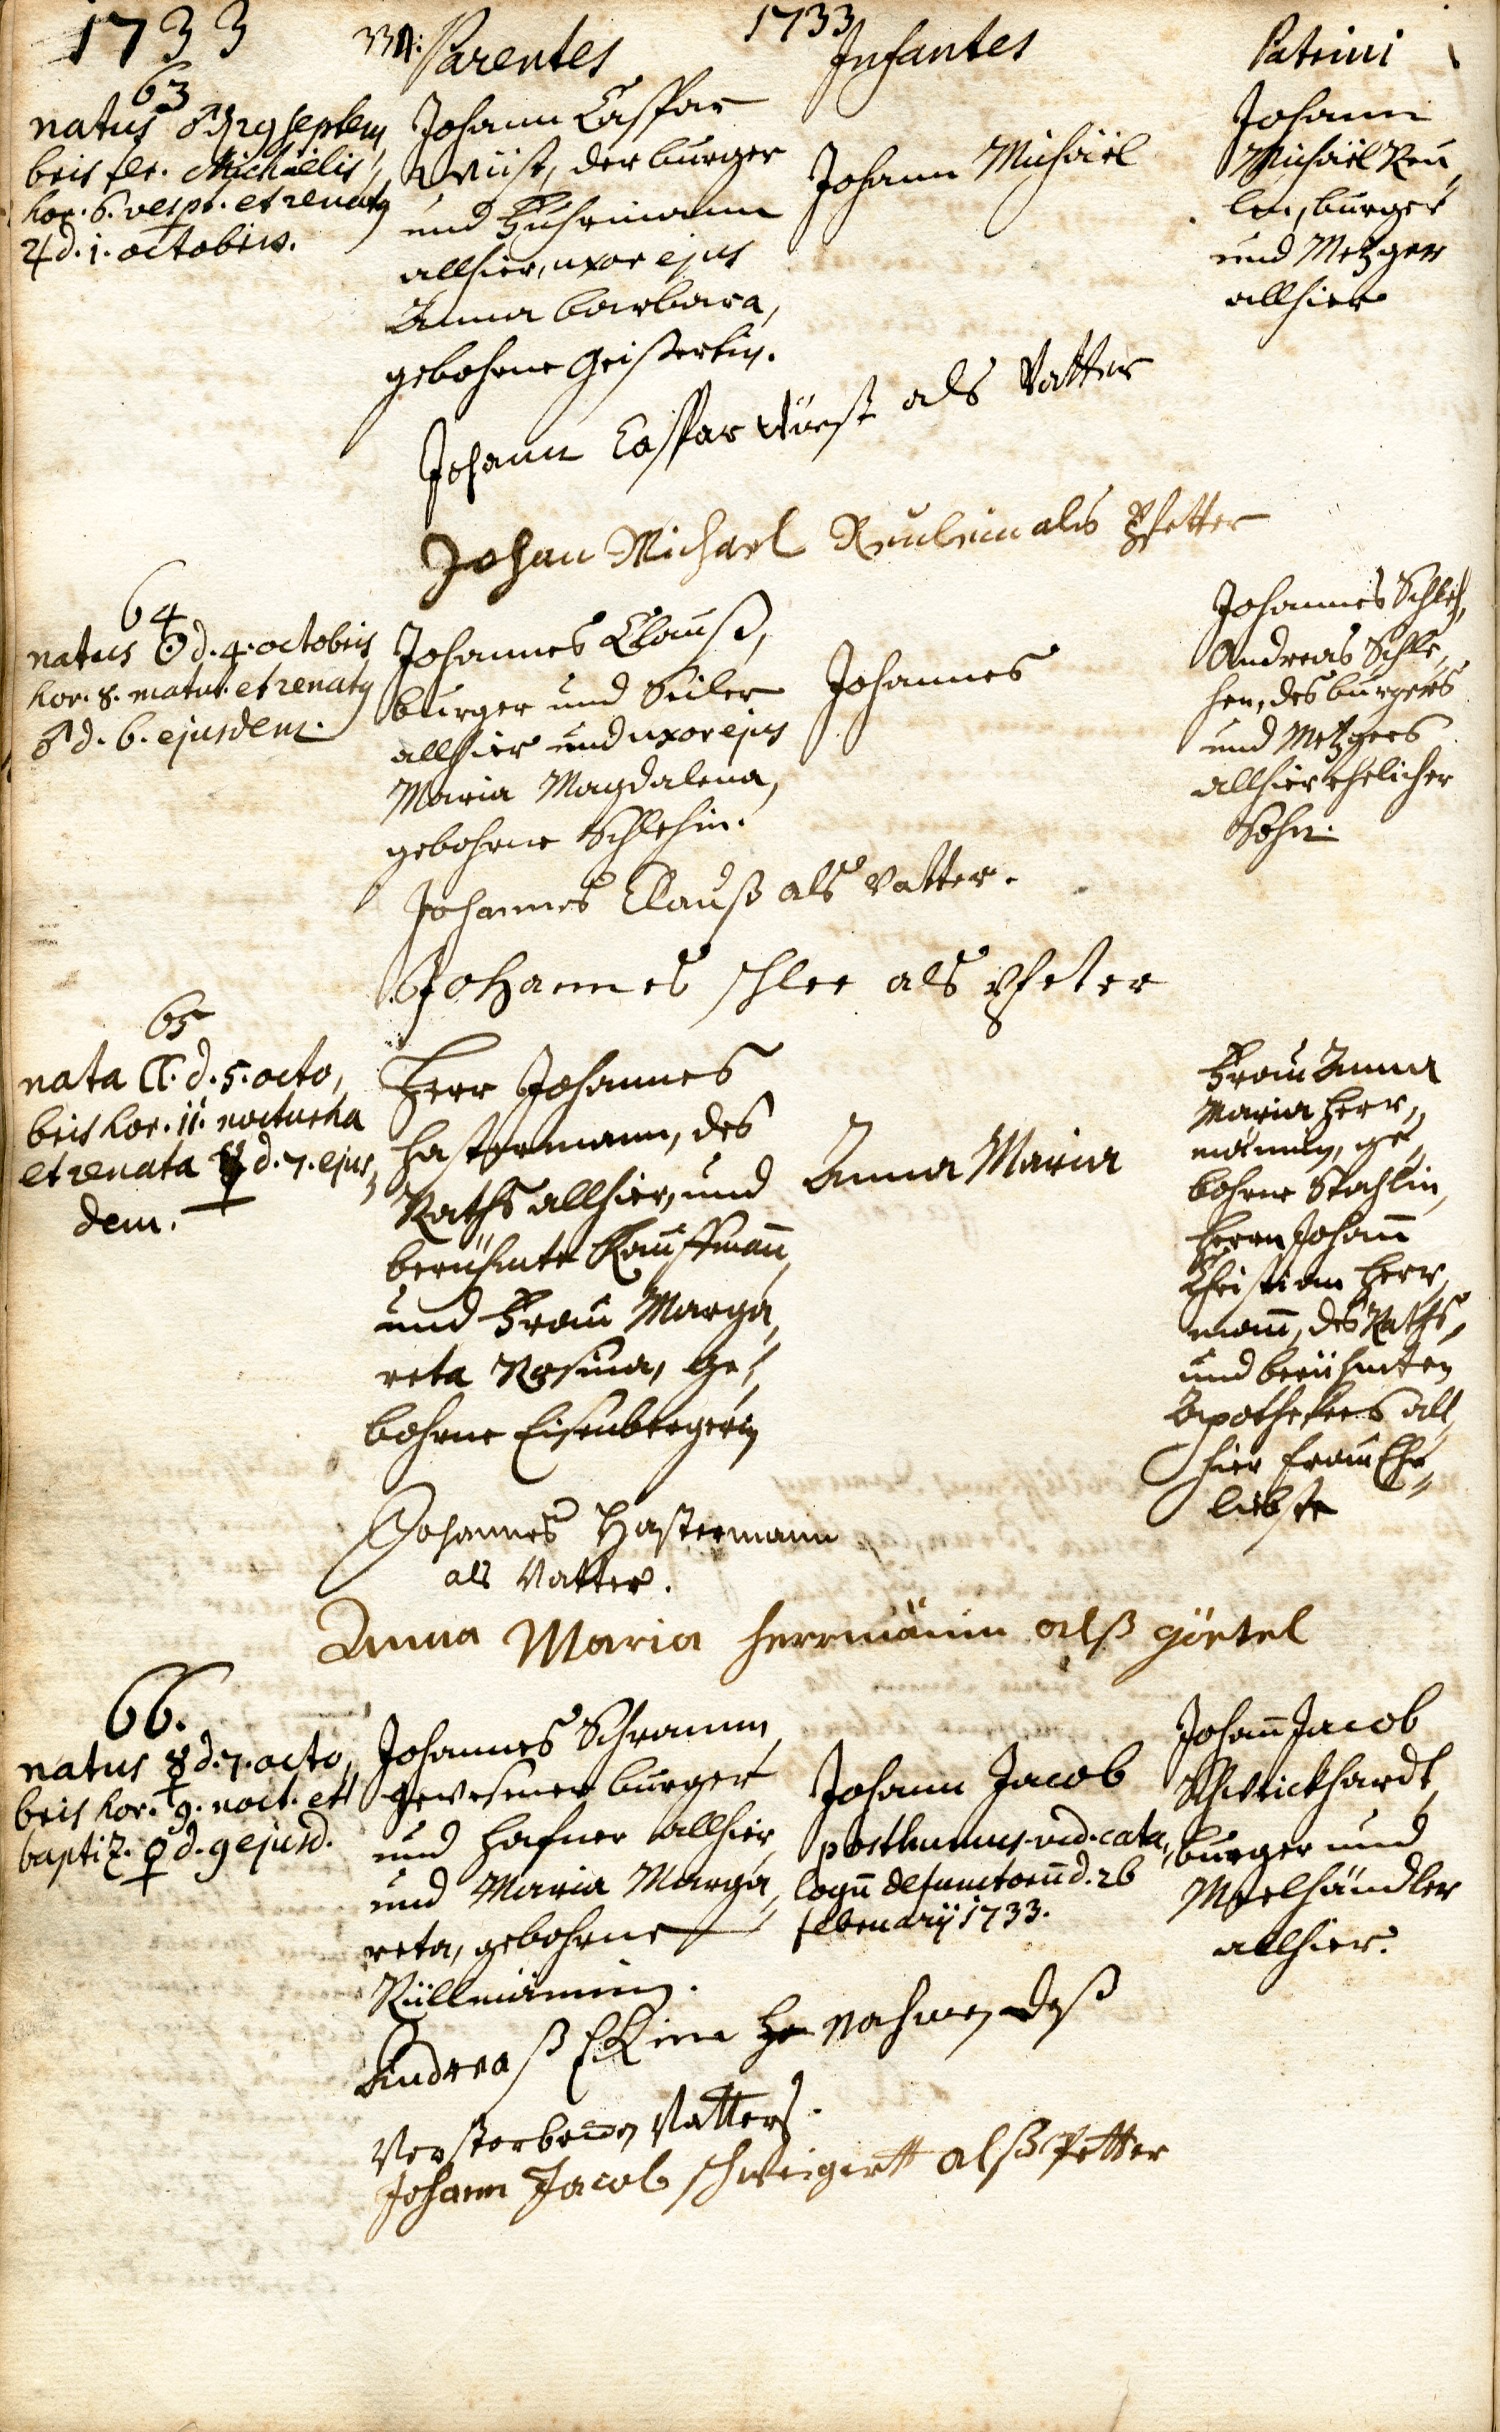 1733
1733
Parentes
Infantes
Patrini
63
natus ♂ d. 29 Septem,
bris fer. Michaëlis,
hor. 6. vesp. et renat9
♃ d. 1. octobris.
Johann Caspar
Wüst, der burger
und Fuhrmann
allhier, uxor ejus
Anna barbara,
gebohrne Geißertin.
Johann Michäel
Johann
Michäel Reu,
len, burger
und Metzger
allhier
Johann Casspar Würst als Vatter
Johan Michael Reulein als Pfetter
64
natus ☉ d. 4. octobris
hor. 8. matut. et renat9
♂ d. 6. ejusdem.
Johannes Clauß,
burger und Seiler
allhier und uxor ejus
Maria Magdalena,
gebohrne Schlehin.
Johannes
Johannes Schleh,
Andreas Schle,
hen, des burgers
und Metzgers
allhier ehelicher
Sohn.
Johannes Clauß als Vatter.
Johannes schlee als Pfeter
65
nata ☾ d. 5. octo,
bris hor. 11. nocturna
et renata ☿ d. 7. ejus,
dem.
Herr Johannes
Hastermann, des
Raths allhier, und
berühmte Kauffmañ,
und Frau Marga,
reta Rosina, ge,
bohrne Eisenbergerin
Anna Maria
Frau Anna
Maria Herr,
männin, ge,
bohrne Stachlin,
Herrn Johañ
Christian Herr,
mañ, des Raths,
und berühmten
Apothekers all,
hier Frau Ehe,
liebste
Johannes Hastermann
als Vatter.
Anna Maria herrmänin alß götel
66.
natus ☿ d. 7. octo,
bris hor. 9. noct. et
baptiz. ♀ d. 9 ejusd.
Johannes Schramm,
gewesener burger
und Hafner allhier,
und Maria Marga,
reta, gebohrne
Rüllmännin.
Johann Jacob
posthumus. vid. cata,
logū defunctorū d. 26
februarij 1733.
Johañ Jacob
Schweickhardt,
burger und
Meelhändler
allhier.
Andreaß nahmen deß
Verstorbenen Vatters.
Johann Jacob schweigertt alß Petter